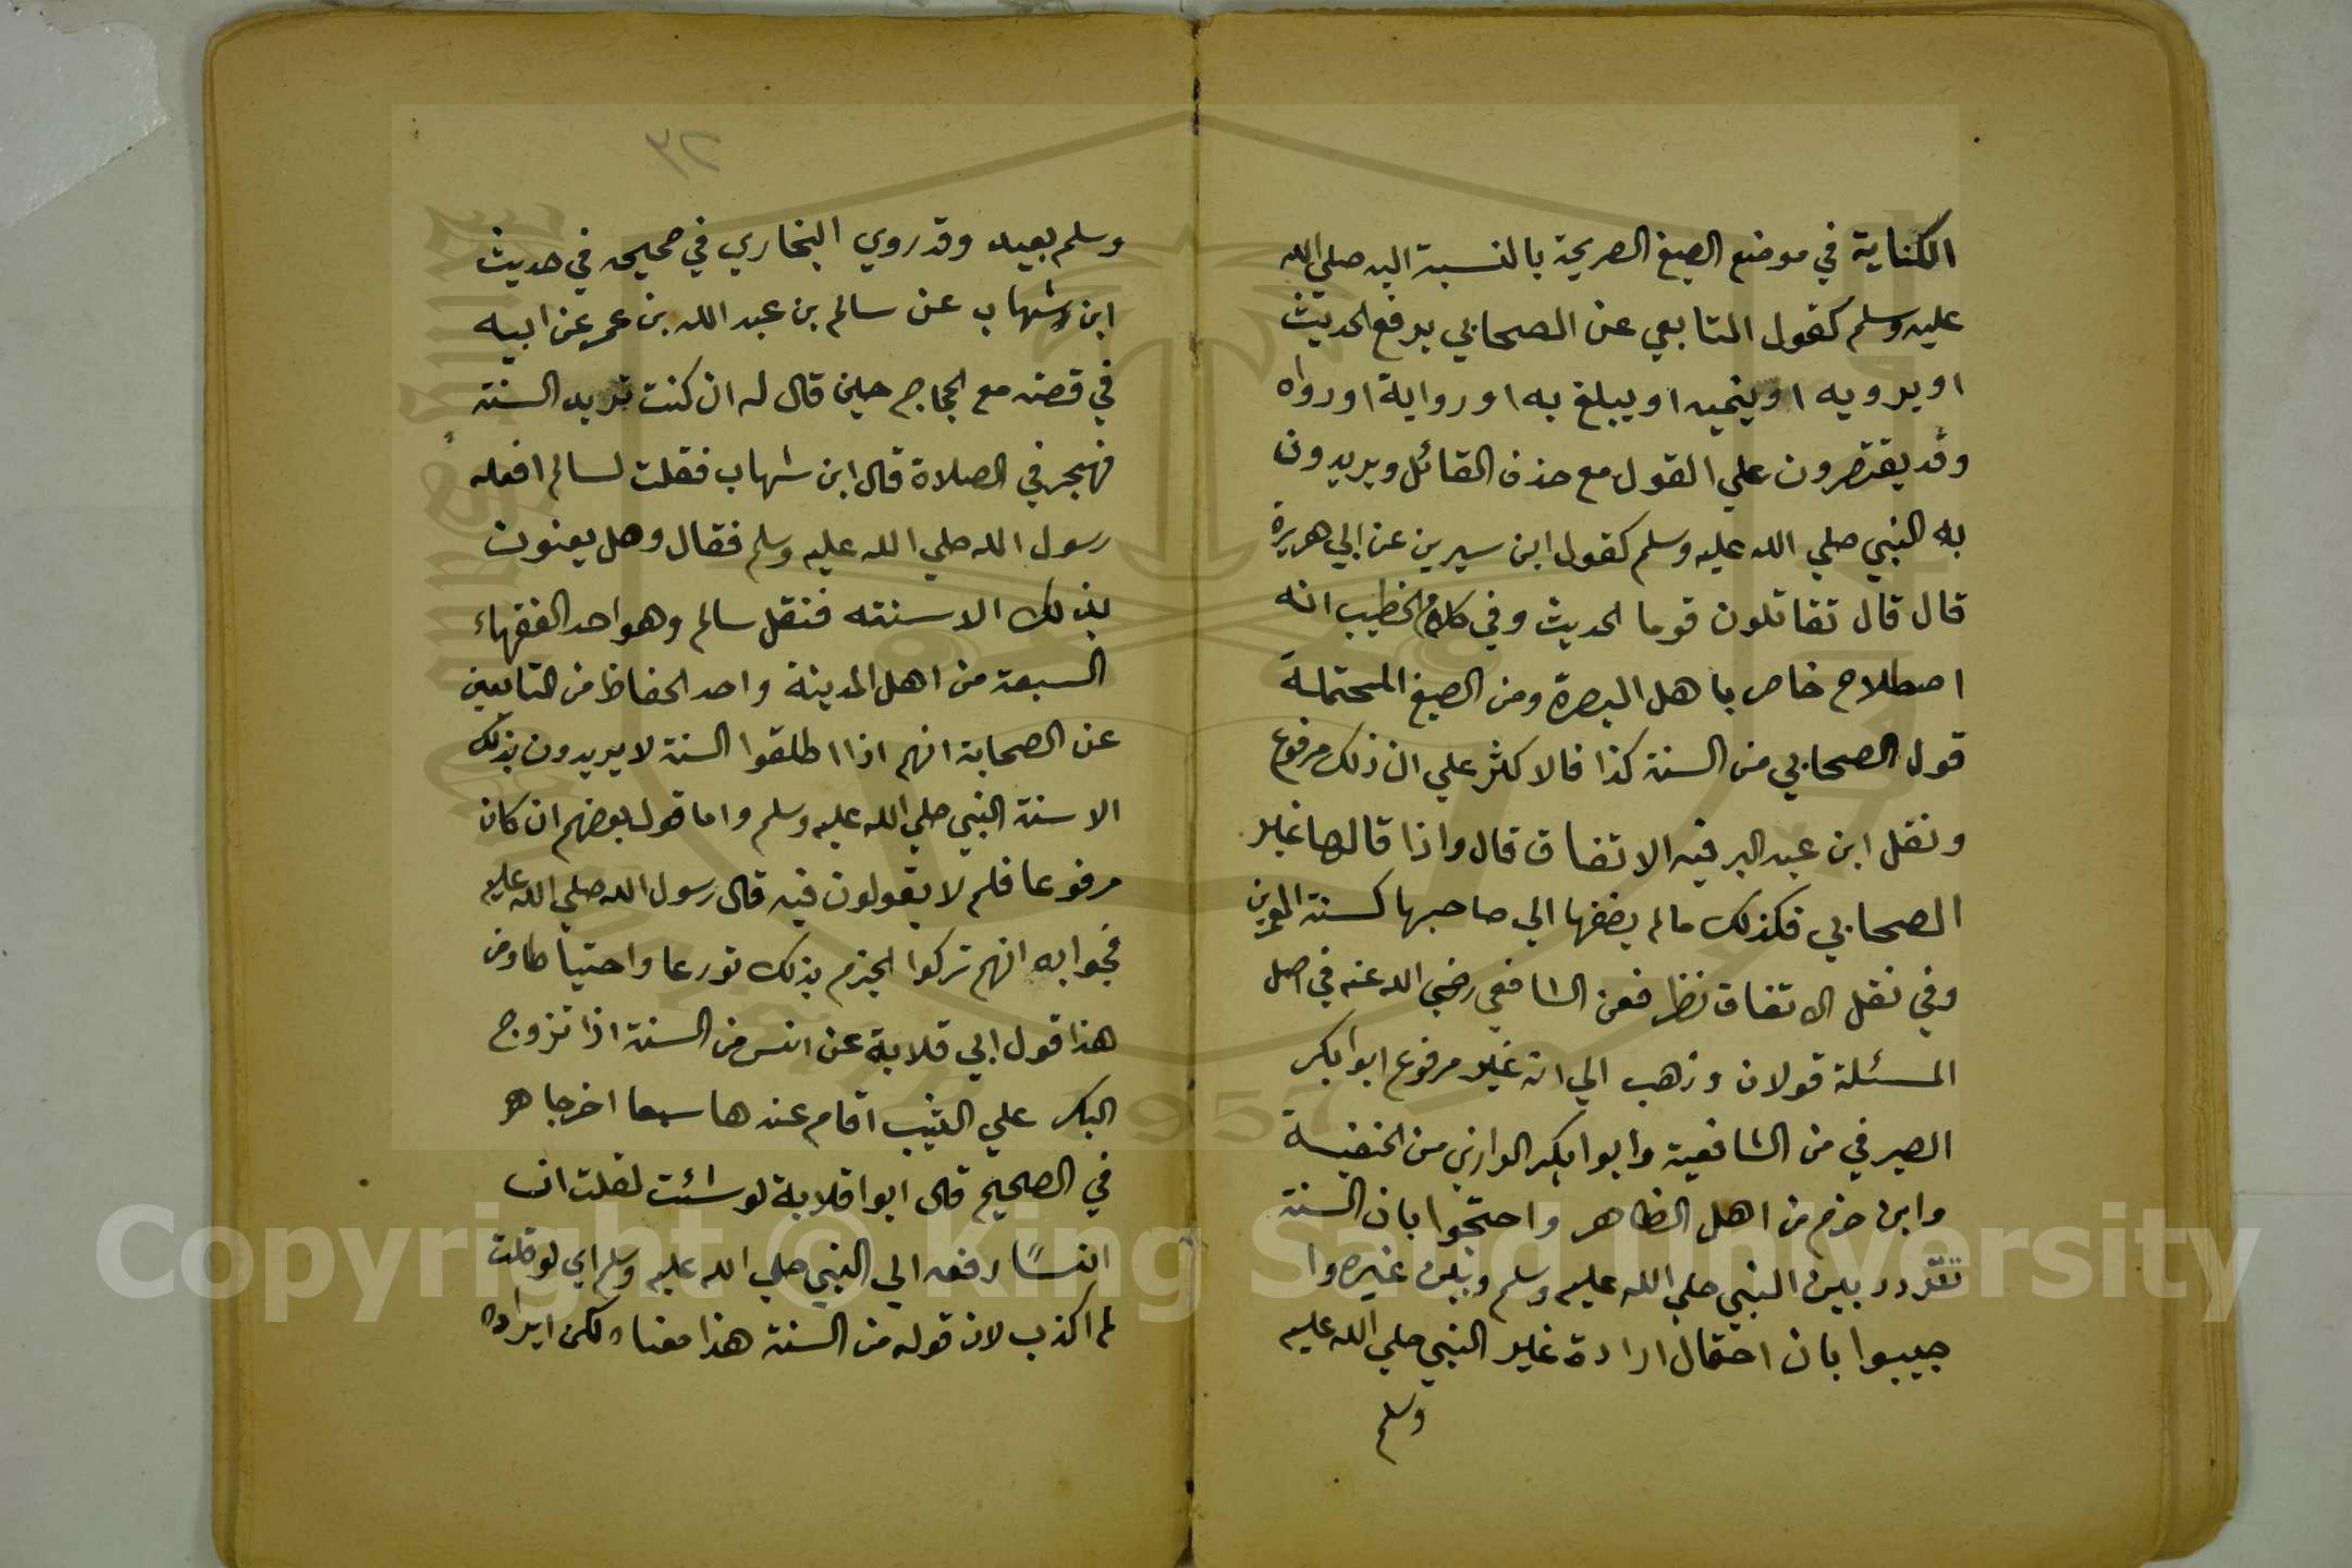 الكناية في موضع الصيغ الصريحة بالنسبة اليه صلي الله
عليه وسلم كقول التابعي عن الصحابي يرفع الحديث
او يرويه او ينميه او يبلغ به او رواية او رواه
وقد يقتصرون علي القول مع حذف القائل ويريدون
به النبي صلي الله عليه وسلم كقول ابن سيرين عن ابي هريرة
قال قال تقاتلون قوما الحديث وفي كلام الخطيب انه
اصطلاح خاص باهل البصرة ومن الصيغ المحتملة
قول الصحابي من السنة كذا فالاكثر علي ان ذلك مرفوع
ونقل ابن عبد البر فيه الاتفاق قال واذا قالها غير
الصحابي فكذلك مالم يضفها الي صاحبها كسنة العمرين
وفي نقل الاتفاق نظر فعن الشافعي رضي الله عنه في اصل
المسئلة قولان وذهب الي انه غير مرفوع ابوابكر
الصيرفي من الشافعية وابوابكر الرازي من الحنفية
وابن حزم من اهل الظاهر واحتجوا بان السنة
تتردد بين النبي صلي الله عليه وسلم وبين غيره وا
جيبوا بان احتمال ارادة غير النبي صلي الله عليه
وسلم
٣٢
وسلم بعيد وقد روي البخاري في صحيحه في حديث
ابن شهاب عن سالم بن عبد الله بن عمر عن ابيه
في قصته مع الحجاج حين قال له ان كنت تريد السنة
فهجر في الصلاة قال ابن شهاب فقلت لسالم افعله
رسول الله صلي الله عليه وسلم فقال وهل يعنون
بذلك الا سنته فنقل سالم وهو احد الفقهاء
السبعة من اهل المدينة واحد الحفاظ من التابعين
عن الصحابة انهم اذا اطلقوا السنة لا يريدون بذلك
الا سنة النبي صلي الله عليه وسلم واما قول بعضهم ان كان
مرفوعا فلم لا يقولون فيه قال رسول الله صلي الله عليه
فجوابه انهم تركوا الجزم بذلك تورعا واحتياطا ومن
هذا قول ابي قلابة عن انس من السنة اذا تزوج
البكر علي الثيب اقام عندها سبعا اخرجاه
في الصحيح قال ابوا قلابة لو شئت لقلت ان
انسًا رفعه الي النبي صلي الله عليه وسلم اي لو قلت
لم اكذب لان قوله من السنة هذا معناه لكن ايراده
Copyright © King Saud University
1957